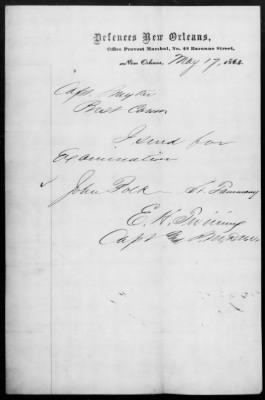 Defences New Orleans,
Office Provost Marshal, No. 48 Baronne Street,
New Orleans, May 17, 1864
Capt.
I send for
Examination
John Polk St. Tammany
E. W.
Capt &